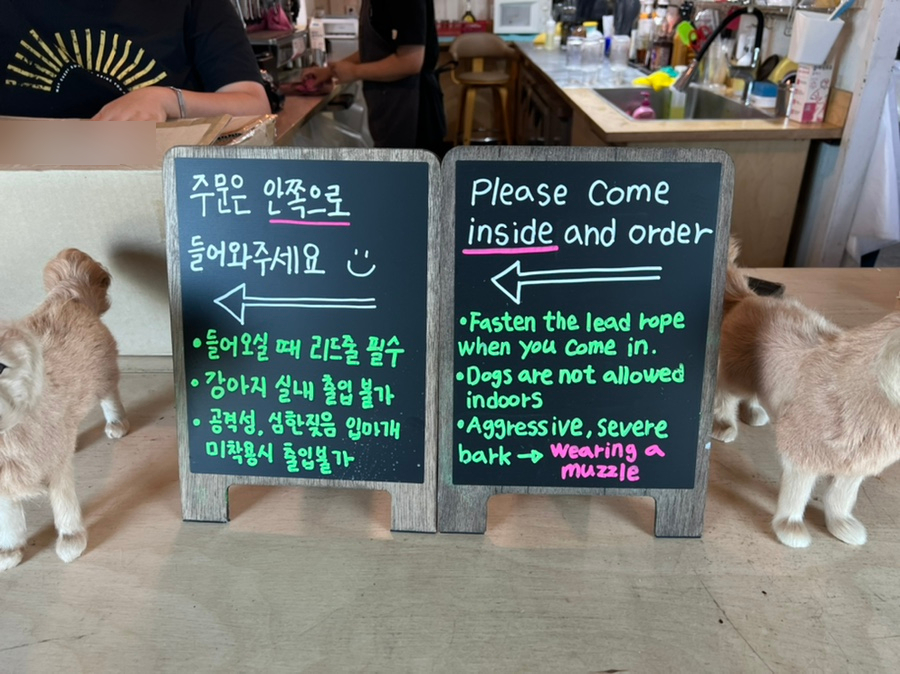 주문은 안쪽으로
들어와주세요
• 들어오실 때 리드줄 필수
• 강아지 실내 출입 불가
• 공격성, 심한짖음 입마개
미착용시 출입불가
Please Come
inside and order
• Fasten the lead rope
when you come in.
• Dogs are not allowed
indoors
• Aggressive, severe
bark → Wearing a
muzzle